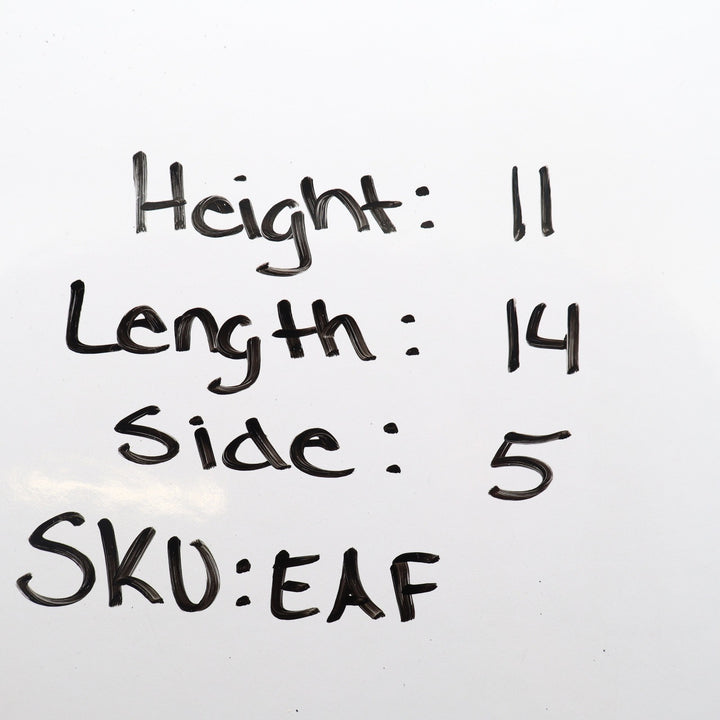 Height: 11
Length: 14
Side: 5
SKU: EAF